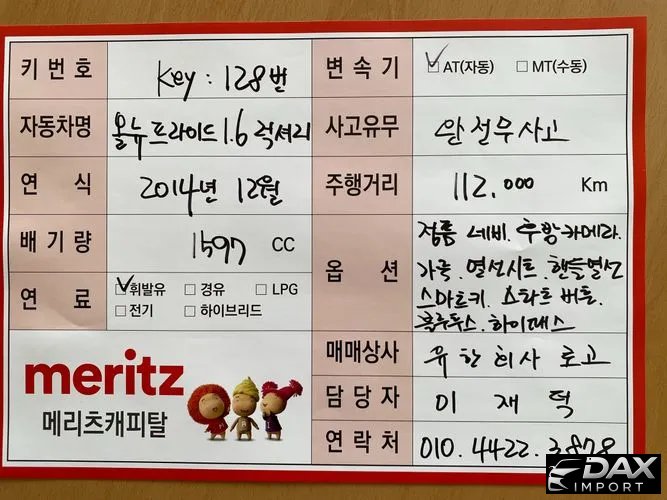 키번호 Key : 128번
변속기 ☑AT(자동) ☐MT(수동)
자동차명 올뉴프라이드1.6 럭셔리
사고유무 완전무사고
연식 2014년 12월
주행거리 112.000 Km
배기량 1597 CC
옵션 정품 네비. 후방카메라.
가죽. 열선시트. 핸들열선
스마트키. 스타트 버튼.
블루투스. 하이패스
연료 ☑휘발유 ☐경유 ☐LPG
☐전기 ☐하이브리드
매매상사 유한회사 로고
담당자 이재덕
연락처 010.4422.3878
meritz
메리츠캐피탈
DAX
IMPORT